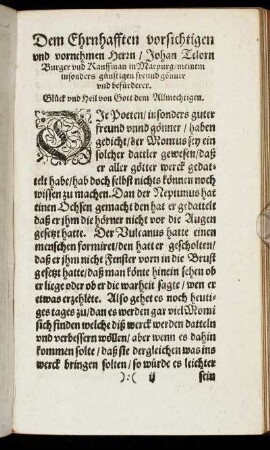 Dem Ehrnhafften vorsichtigen
vnd vornehmen Herrn / Johan Tilorn
Burger vnd Kauffman in Marpurg / meinem
insonders günstigen freund gönner
vnd beförderer.
Glück vnd Heil von Gott dem Allmechtigen.
DIe Poeten / insonders guter
freund vnnd gönner / haben
gedicht / der Momus sey ein
solcher dattler gewesen / daß
er aller götter werck gedat-
telt habe / hab doch selbst nichts können noch
wissen zu machen. Dan der Neptunus hat
einen Ochsen gemacht den hat er gedattelt
daß er ihm die hörner nicht vor die Augen
gesetzt hatte. Der Vulcanus hatte einen
menschen formiret / den hatt er gescholten /
daß er ihm nicht Fenster vorn in die Brust
gesetzt hatte / daß man könte hinein sehen ob
er liege oder ob er die warheit sagte / wen er
etwas erzehlete. Also gehet es noch heuti-
ges tages zu / dan es werden gar viel Momi
sich finden welche diß werck werden datteln
vnd verbessern wöllen / aber wenn es dahin
kommen solte / daß sie dergleichen was ins
werck bringen solten / so würde es leichter
):( ij sein